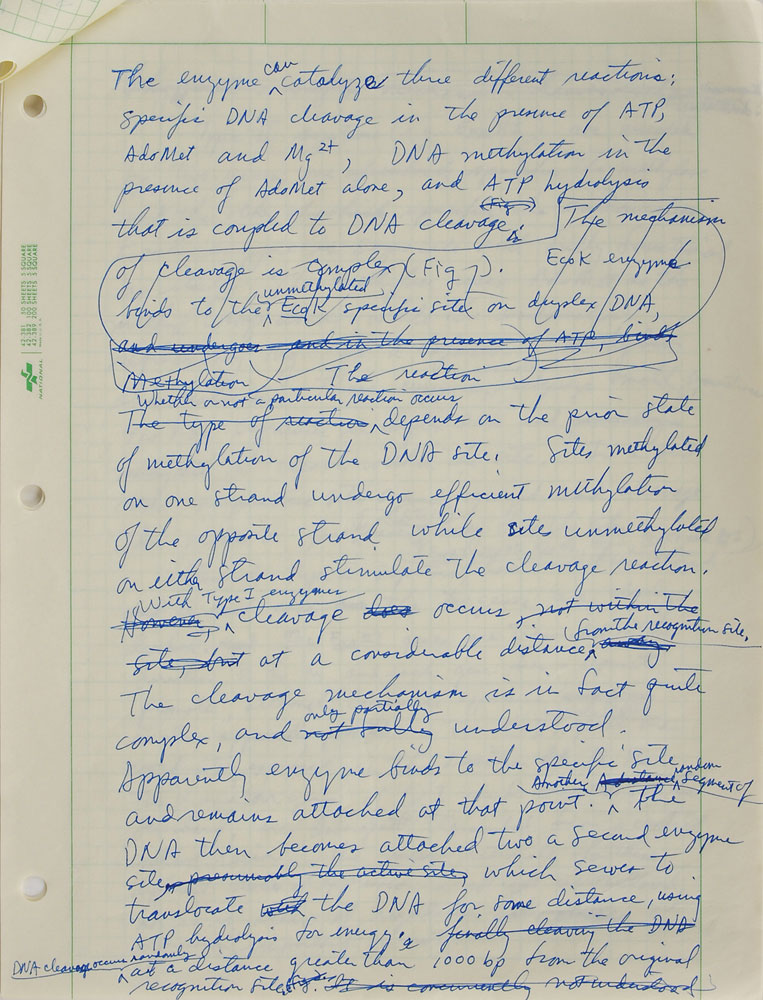 The enzyme can catalyzes three different reactions:
specific DNA cleavage in the presence of ATP,
AdoMet and Mg2+, DNA methylation in the
presence of AdoMet alone, and ATP hydrolysis
that is coupled to DNA cleavage (Fig ). The mechanism
of cleavage is complex (Fig ). EcoK enzyme
binds to the unmethylated EcoK specific site on duplex DNA,
and undergoes and in the presence of ATP, binds
Methylation The reaction
Whether or not a particular reaction occurs
The type of reaction depends on the prior state
of methylation of the DNA site. Sites methylated
on one strand undergo efficient methylation
of the opposite strand while sites unmethylated
on either strand stimulate the cleavage reaction.
With Type I enzymes
However cleavage does occurs, not within the
site, but at a considerable distance from the recognition site. away
The cleavage mechanism is in fact quite
complex, and only partially not fully understood.
Apparently enzyme binds to the specific site
Another A distance random segment of
and remains attached at that point. the
DNA then becomes attached two a second enzyme
site, presumably the active site, which serves to
translocate with the DNA for some distance, using
ATP hydrolysis for energy. finally cleaving the DNA
DNA cleavage occurs randomly at a distance greater than 1000 bp from the original
recognition site. It is concurrently not understood
42-381 50 SHEETS 5 SQUARE
42-382 100 SHEETS 5 SQUARE
42-389 200 SHEETS 5 SQUARE
NATIONAL